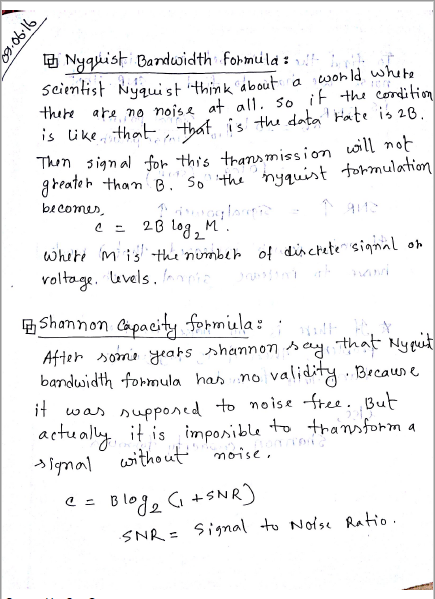 09.06.16
Nyquist Bandwidth Formula:
scientist Nyquist think about a world where
there are no noise at all. So if the condition
is like that, that is the data rate is 2B.
Then signal for this transmission will not
greater than B. So the nyquist formulation
becomes,
c = 2B log₂ M.
where M is the number of discrete signal or
voltage. levels.
Shannon Capacity formula:
After some years shannon say that Nyquist
bandwidth formula has no validity. Because
it was supposed to noise free. But
actually it is imposible to transform a
signal without noise.
c = B log₂ (1 + SNR)
SNR = Signal to Noise Ratio.